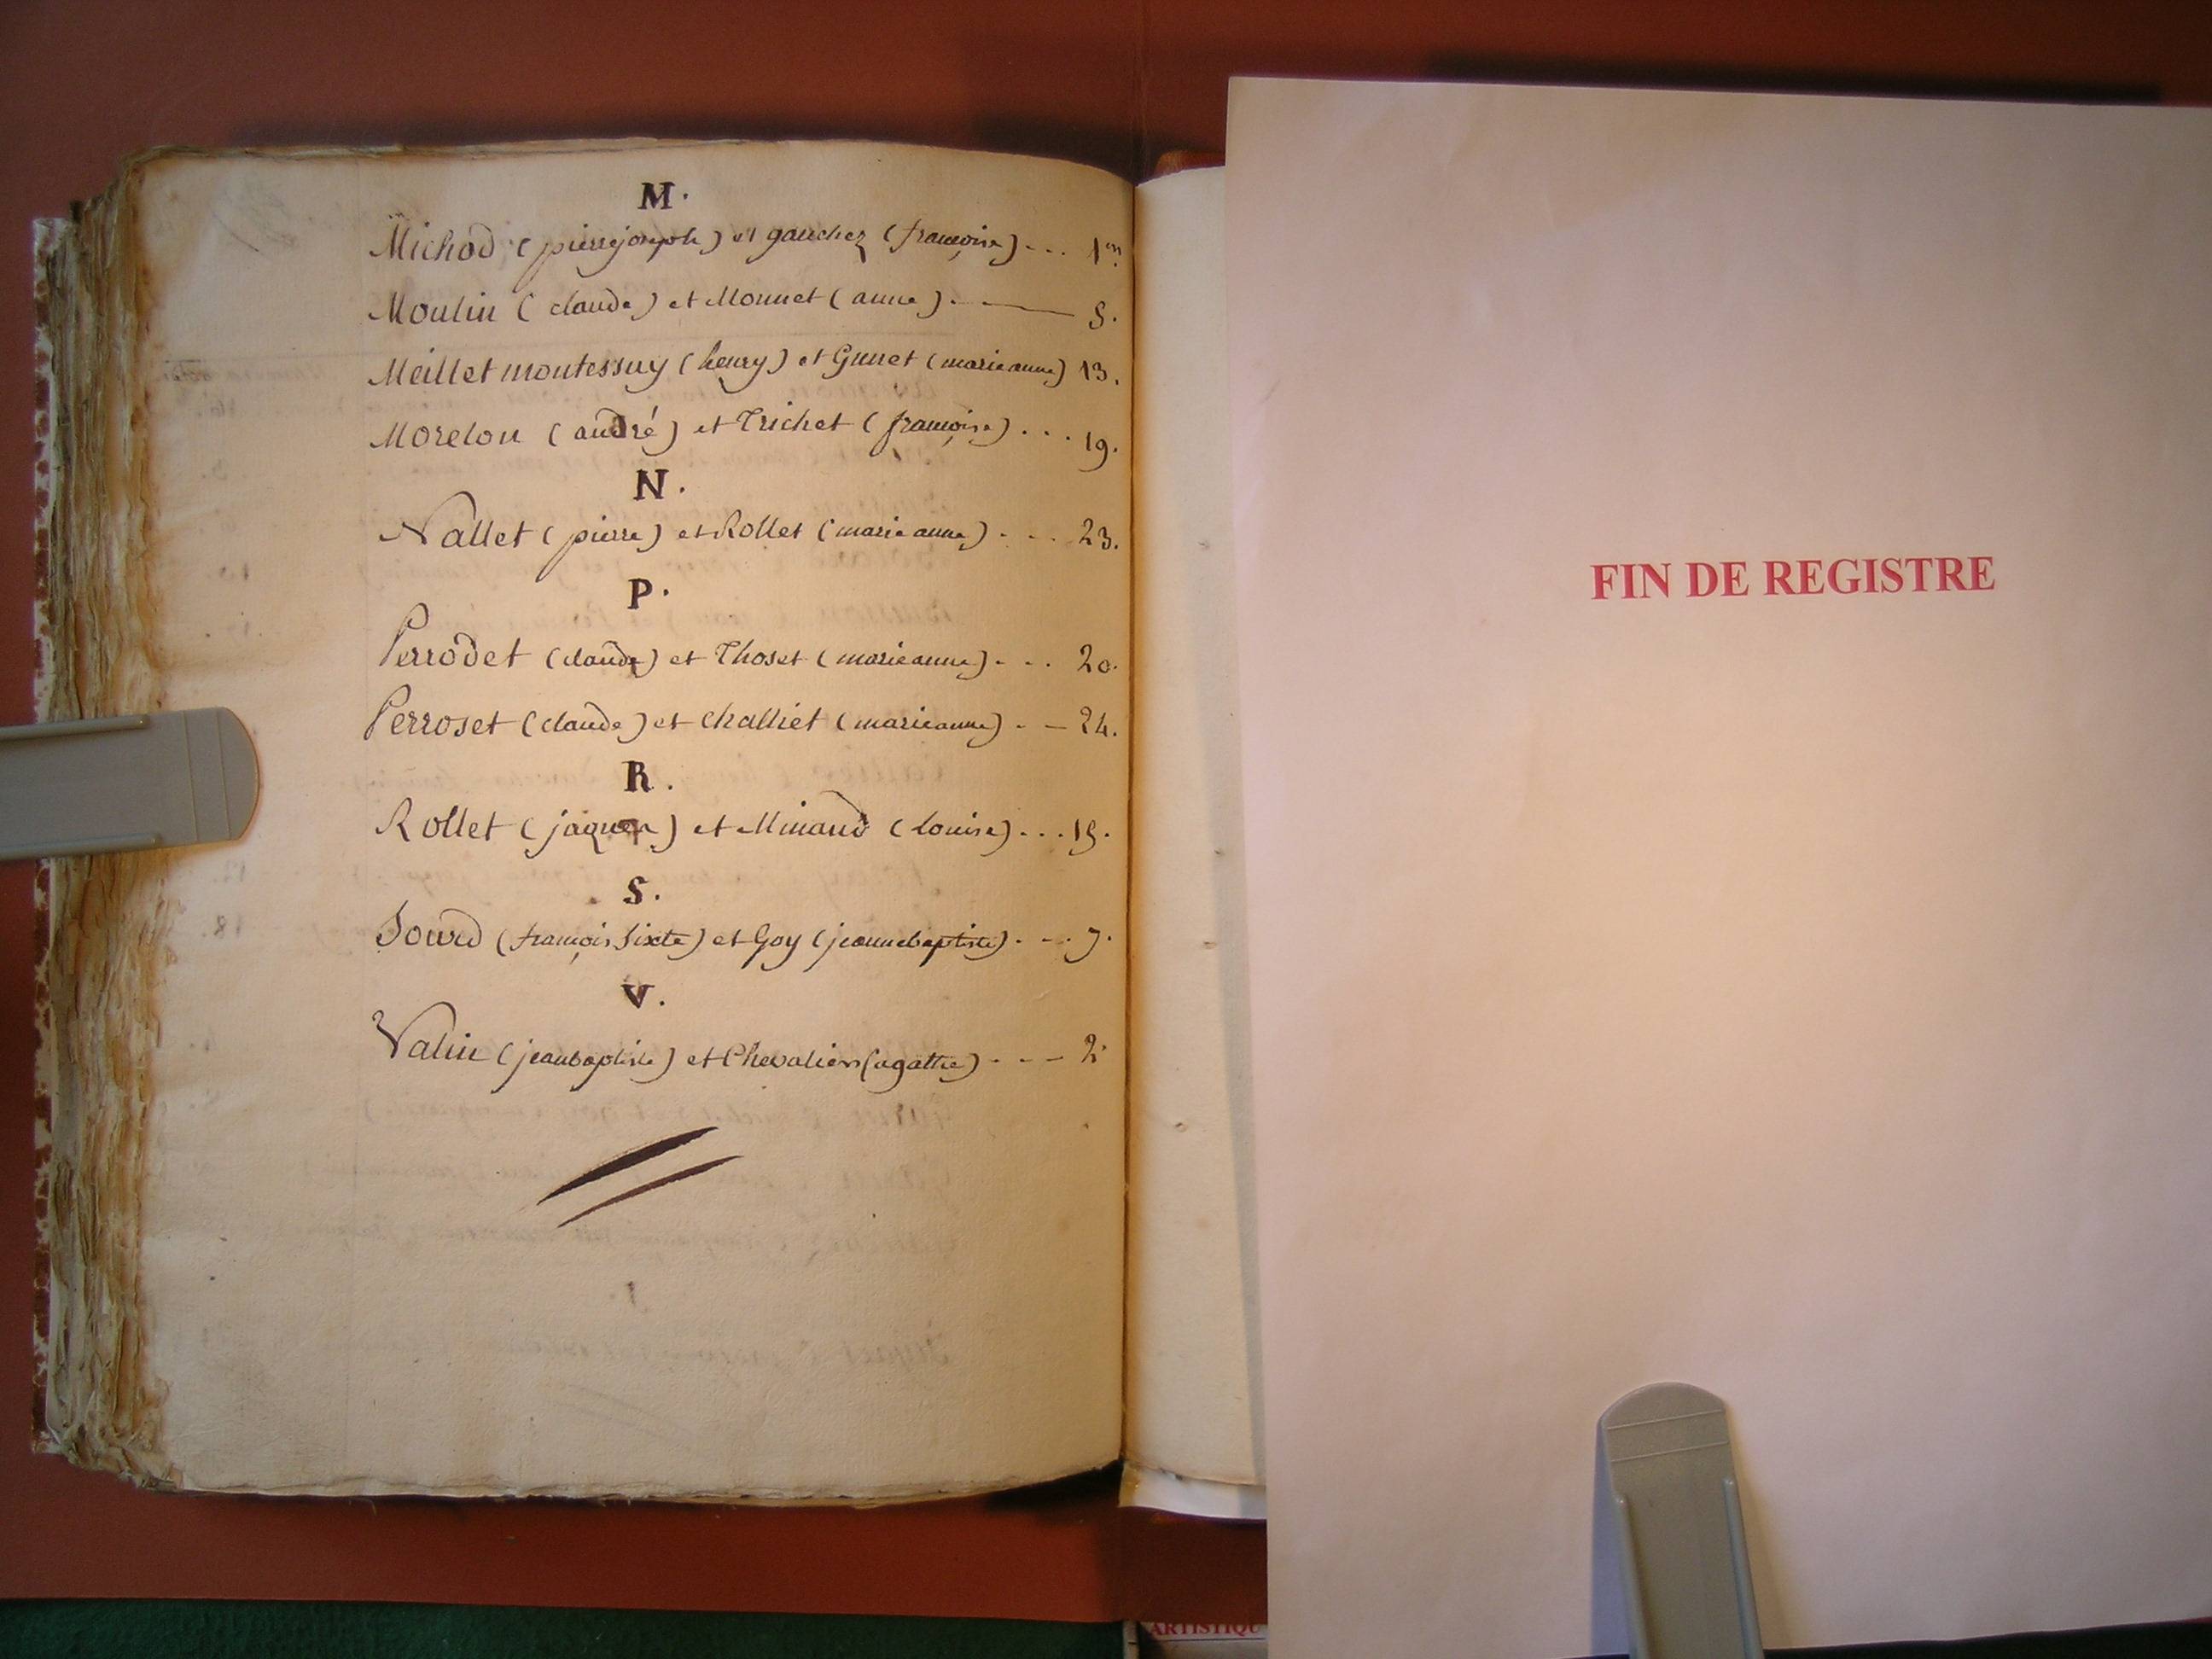 M.
Michod (pierre joseph) et gauchez (françoise) ... 1er
Moulin (claude) et Monnet (anne) . — 5.
Meillet montessuy (henry) et Gunet (marie anne) 13.
Morelon (andré) et Trichet (françoise) ... 19.
N.
Nallet (pierre) et Rollet (marie anne) ... 23.
P.
Perrodet (claude) et Thoset (marie anne) ... 20.
Perroset (claude) et Challiet (marie anne) . — 24.
R.
Rollet (jaques) et Minaud (louise) ... 15.
S.
Sourd (françois Sixte) et Goy (jeanne baptiste) ... 7.
V.
Valin (jean baptiste) et Chevalier (agathe) ... 2.
FIN DE REGISTRE
ARTISTIQU